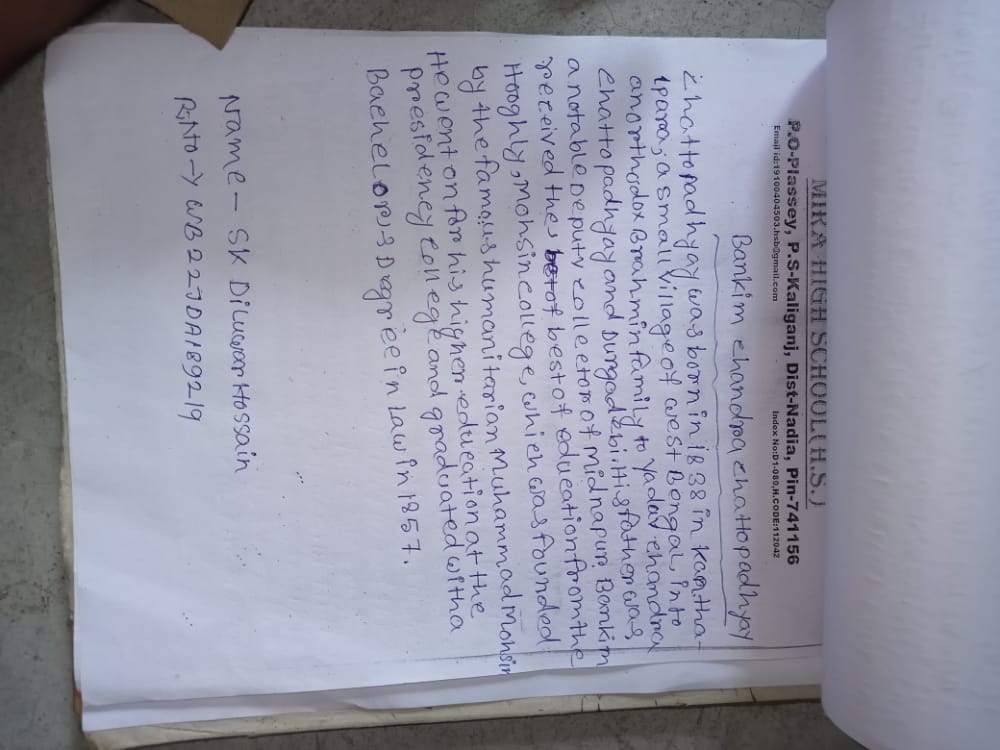 MIRA HIGH SCHOOL (H.S.)
P.O-Plassey, P.S-Kaliganj, Dist-Nadia, Pin-741156
Email id:19100404503.hsb@gmail.com Index No:D1-080,H.CODE:112042
Bankim chandra chattopadhyay
chattopadhyay was born in 1838 in Kantha-
lpara, a small village of west Bengal, into
an orthodox Brahmin family to Yadav chandra
chattopadhyay and Durgadebi. His father was
a notable Deputy collector of Midnapur. Bankim
received the best of best of education from the
Hooghly, Mohsin college, which was founded
by the famous humanitarian Muhammad Mohsin
He went on for his higher education at the
presidency college and graduated with a
Bachelors Dagree in Law in 1857.
Name - SK Diluwar Hossain
R.No → WB22JDA189219